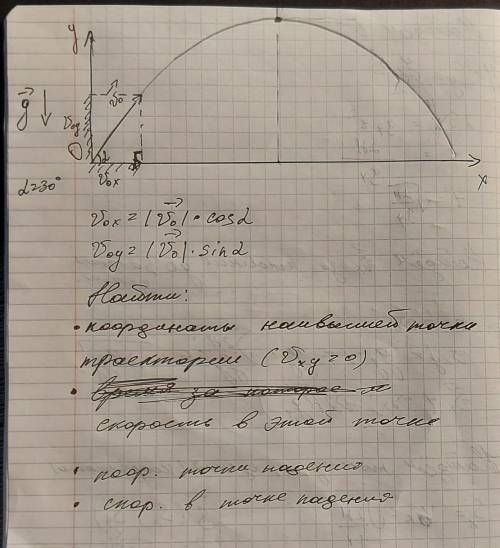 y
v₀
g
v₀y
0
α
v₀x
x
α=30°
v₀x = |v₀| · cosα
v₀y = |v₀| · sinα
Найти:
• координаты наивысшей точки
траектории (vxy = 0)
• время за которое
скорость в этой точке
• коор. точки падения
• скор. в точке падения